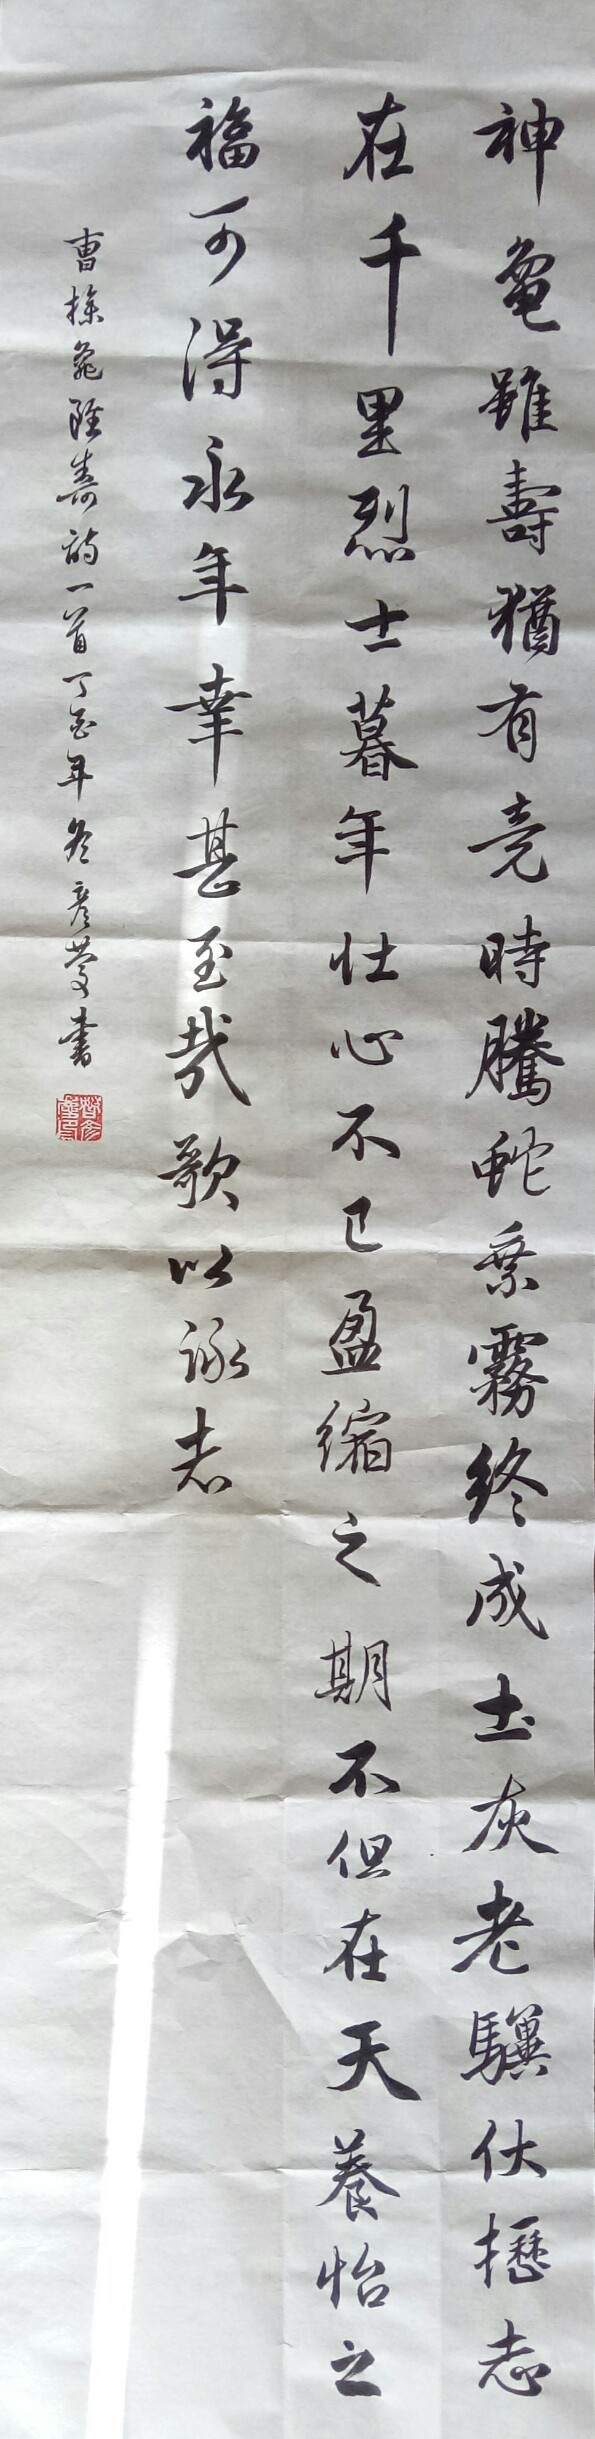 神龜雖壽猶有竟時騰蛇乘霧終成土灰老驥伏櫪志
在千里烈士暮年壯心不已盈縮之期不但在天養怡之
福可得永年幸甚至哉歌以詠志
曹操龜雖壽詩一首丁酉年冬彦蔓書